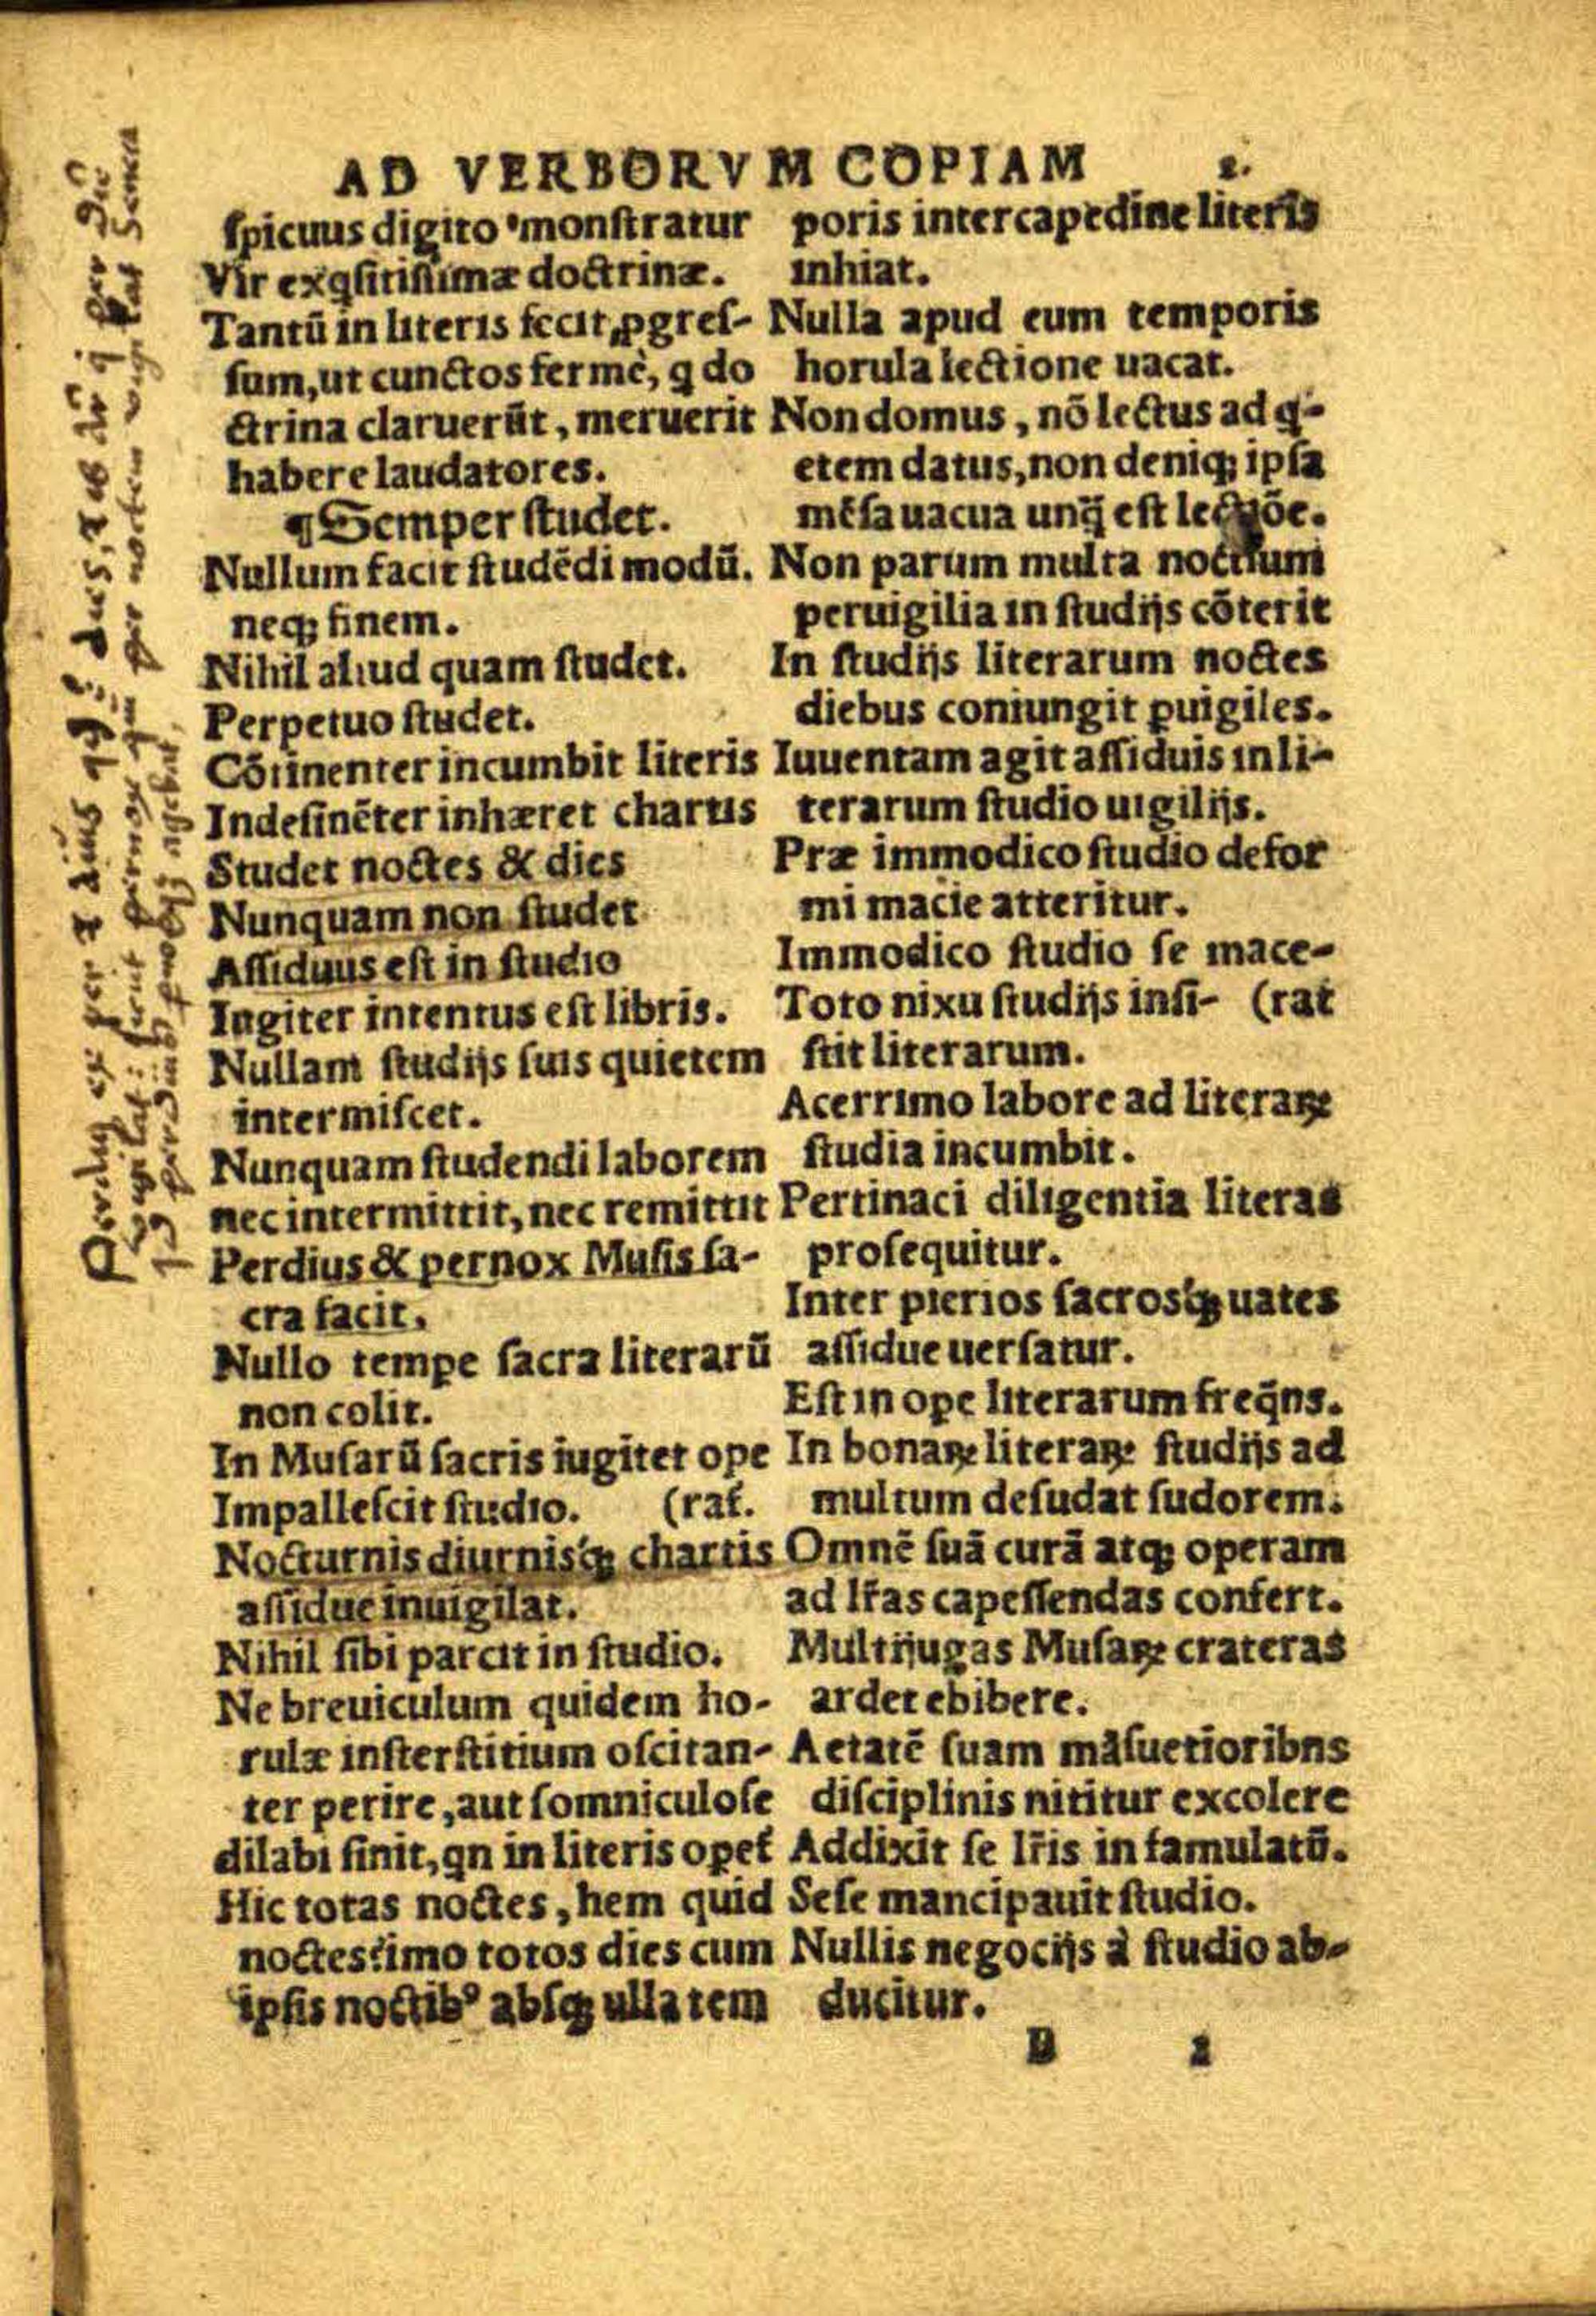 AD VERBORVM COPIAM 2.
ſpicuus digito 'monſtratur
Vir exqſitiſſimæ doctrinæ.
Tantū in literis fecit ꝓgreſ-
ſum, ut cunctos fermè, q do
ctrina claruerūt, meruerit
habere laudatores.
¶Semper ſtudet.
Nullum facit ſtudēdi modū.
neqꝫ finem.
Nihil aliud quam ſtudet.
Perpetuo ſtudet.
Cōtinenter incumbit literis
Indeſinēter inhæret chartis
Studet noctes & dies
Nunquam non ſtudet
Aſſiduus eſt in ſtudio
Iugiter intentus eſt libris.
Nullam ſtudijs ſuis quietem
intermiſcet.
Nunquam ſtudendi laborem
nec intermittit, nec remittit
Perdius & pernox Muſis ſa-
cra facit.
Nullo tempe ſacra literarū
non colit.
In Muſarū ſacris iugiter ope
Impalleſcit ſtudio. (rat.
Nocturnis diurniſqꝫ chartis
aſſidue inuigilat.
Nihil ſibi parcit in ſtudio.
Ne breuiculum quidem ho-
rulæ inſterſtitium oſcitan-
ter perire, aut ſomniculoſe
dilabi ſinit, qn in literis oꝑet
Hic totas noctes, hem quid
noctes: imo totos dies cum
ipſis noctibꝰ abſqꝫ ulla tem
poris intercapedine literis
inhiat.
Nulla apud eum temporis
horula lectione uacat.
Non domus, nō lectus ad q-
etem datus, non deniqꝫ ipſa
mēſa uacua unq̄ eſt lectiōe.
Non parum multa noctium
peruigilia in ſtudijs cōterit
In ſtudijs literarum noctes
diebus coniungit ꝑuigiles.
Iuuentam agit aſſiduis in li-
terarum ſtudio uigilijs.
Præ immodico ſtudio defor
mi macie atteritur.
Immodico ſtudio ſe mace-
Toto nixu ſtudijs inſi- (rat
ſtit literarum.
Acerrimo labore ad literaꝝ
ſtudia incumbit.
Pertinaci diligentia literas
proſequitur.
Inter pierios ſacroſqꝫ uates
aſſidue uerſatur.
Eſt in ope literarum freq̄ns.
In bonaꝝ literaꝝ ſtudijs ad
multum deſudat ſudorem.
Omnē ſuā curā atqꝫ operam
ad lr̄as capeſſendas confert.
Multijugas Muſaꝝ crateras
ardet ebibere.
Aetatē ſuam māſuetioribns
diſciplinis nititur excolere
Addixit ſe lr̄is in famulatū.
Seſe mancipauit ſtudio.
Nullis negocijs à ſtudio ab-
ducitur.
B 2